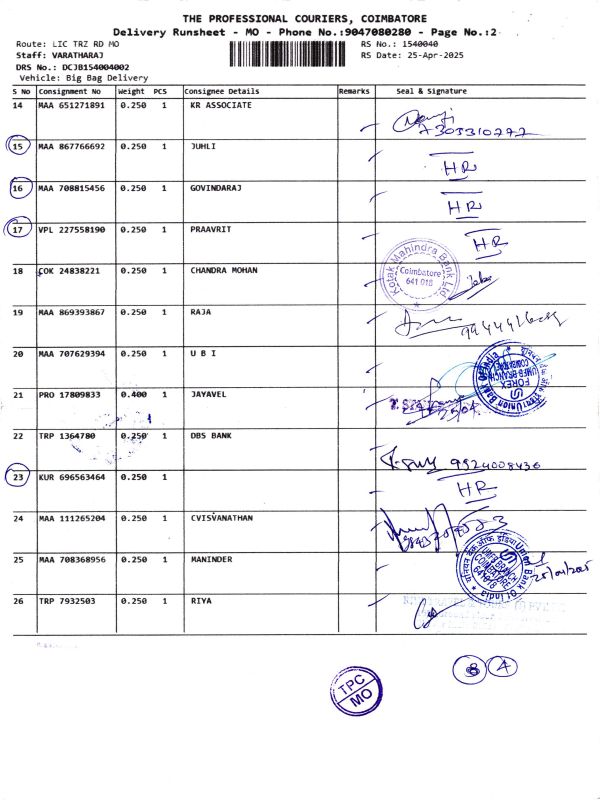 THE PROFESSIONAL COURIERS, COIMBATORE
Delivery Runsheet - MO - Phone No.:9047080280 - Page No.:2
Route: LIC TRZ RD MO
RS No.: 1540040
Staff: VARATHARAJ
RS Date: 25-Apr-2025
DRS No.: DCJB154004002
Vehicle: Big Bag Delivery
S No Consignment No Weight PCS Consignee Details Remarks Seal & Signature
14 MAA 651271891 0.250 1 KR ASSOCIATE
7303310777
15 MAA 867766692 0.250 1 JUHLI
HR
16 MAA 708815456 0.250 1 GOVINDARAJ
HR
17 VPL 227558190 0.250 1 PRAAVRIT
HR
18 COK 24838221 0.250 1 CHANDRA MOHAN
Kotak Mahindra Bank Ltd
Coimbatore
641 018
19 MAA 869393867 0.250 1 RAJA
20 MAA 707629394 0.250 1 U B I
Union Bank Of India
FOREX
UMFB BRANCH
COIMBATORE
21 PRO 17809833 0.400 1 JAYAVEL
25/04
22 TRP 1364780 0.250 1 DBS BANK
9524008436
23 KUR 696563464 0.250 1
HR
24 MAA 111265204 0.250 1 CVISVANATHAN
25 MAA 708368956 0.250 1 MANINDER
यूनियन बैंक ऑफ इंडिया Union Bank Of India
UMFB BRANCH
COIMBATORE
641018
25/04/2025
26 TRP 7932503 0.250 1 RIYA
8 4
TPC
MO